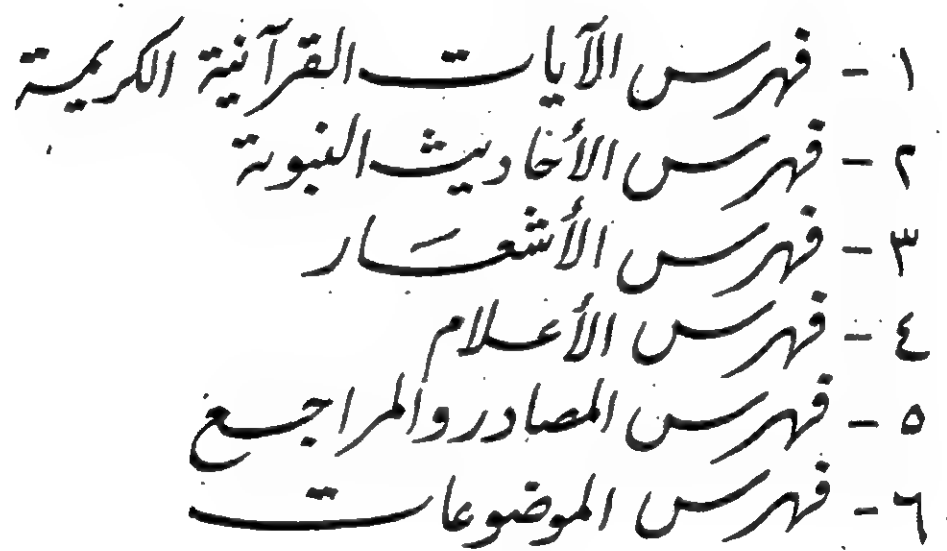 ١ - فهرس الآيات القرآنية الكريمة
٢ - فهرس الأحاديث النبوية
٣ - فهرس الأشعَار
٤ - فهرس الأعلام
٥ - فهرس المصادر والمراجع
٦ - فهرس الموضوعات